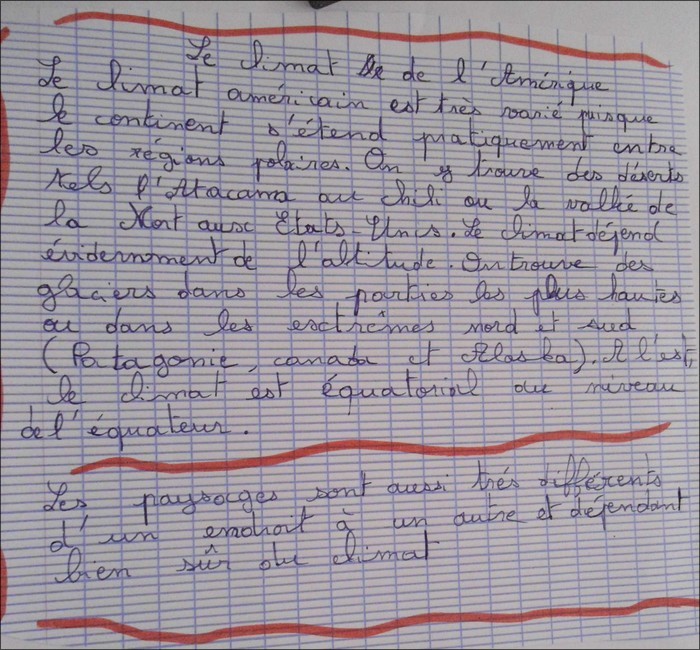 Le climat de de l'Amérique
Le climat américain est très varié puisque
le continent s'étend pratiquement entre
les régions polaires. On y trouve des déserts
tels l'Atacama au chili ou la vallée de
la Mort aux Etats-Unis. Le climat dépend
évidemment de l'altitude. On trouve des
glaciers dans les parties les plus hautes
ou dans les extrêmes nord et sud
(Patagonie, canada et Alaska). A l'est,
le climat est équatorial au niveau
de l'équateur.
Les paysages sont aussi trés différents
d'un endroit à un autre et dépendant
bien sûr du climat